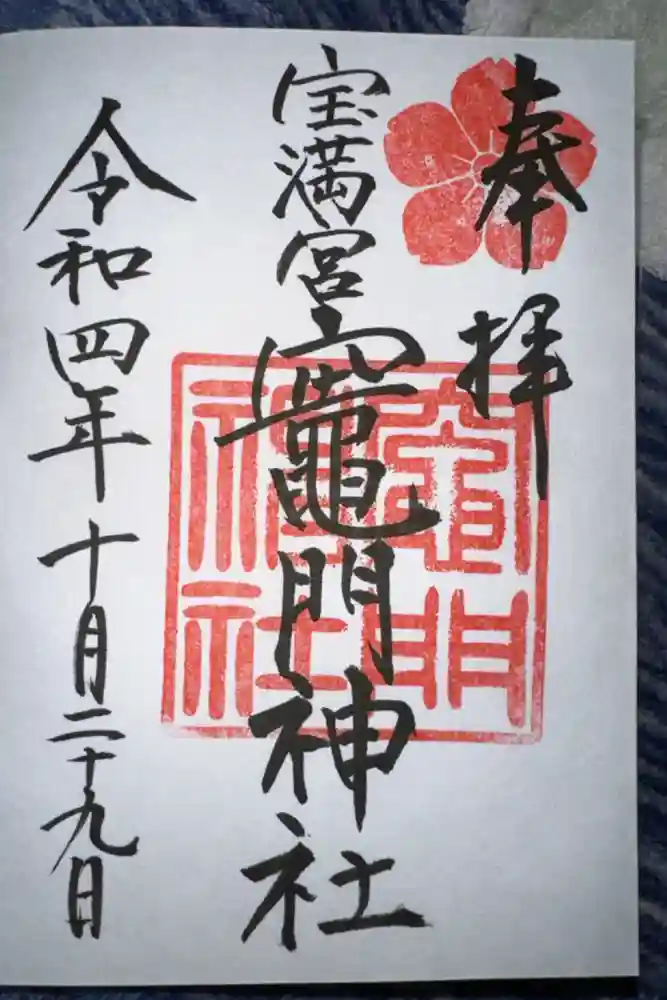 奉拝
宝満宮
竈門神社
令和四年十月二十九日
竈門
神社